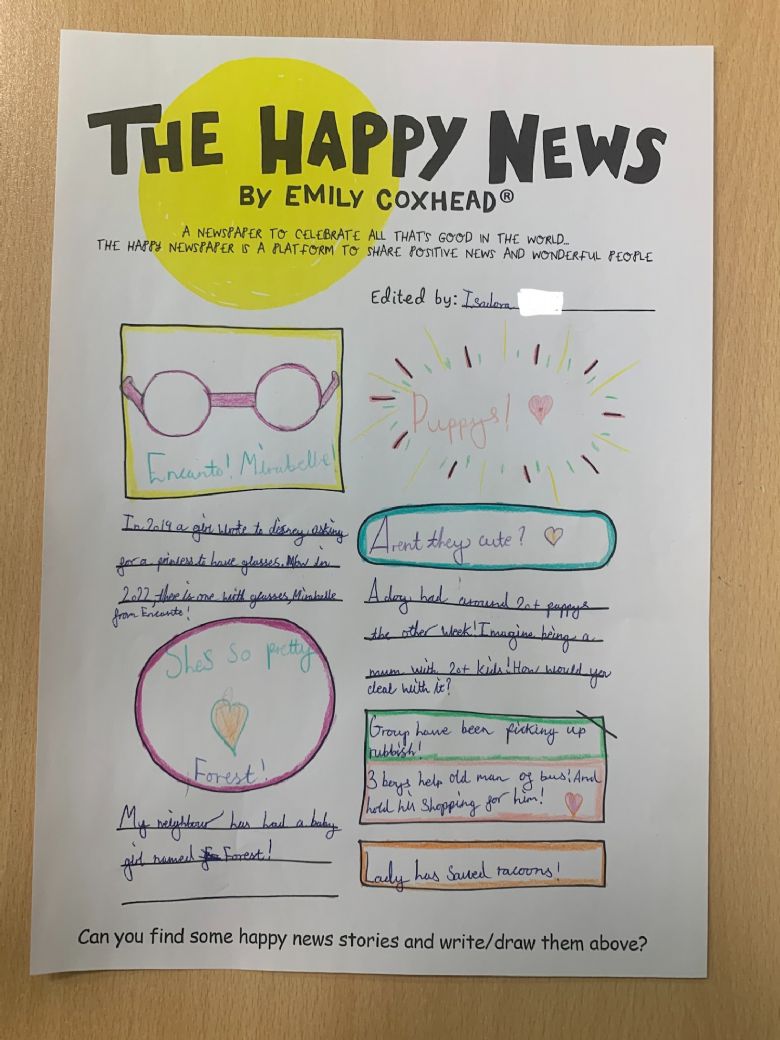 THE HAPPY NEWS
BY EMILY COXHEAD®
A NEWSPAPER TO CELEBRATE ALL THAT'S GOOD IN THE WORLD...
THE HAPPY NEWSPAPER IS A PLATFORM TO SHARE POSITIVE NEWS AND WONDERFUL PEOPLE
Edited by: Isidora
Encanto! Mirabelle!
In 2019 a girl wrote to disney asking
for a princess to have glasses. Now in
2022, there is one with glasses, Mirabelle
from Encanto!
Shes so pretty
Forest!
My neighbour has had a baby
girl named Forest!
Puppys!
Arent they cute?
A dog had around 20+ puppys
the other week! Imagine being a
mum with 20+ kids! How would you
deal with it?
Group have been picking up
rubbish!
3 boys help old man of bus! And
hold his shopping for him!
Lady has saved racoons!
Can you find some happy news stories and write/draw them above?